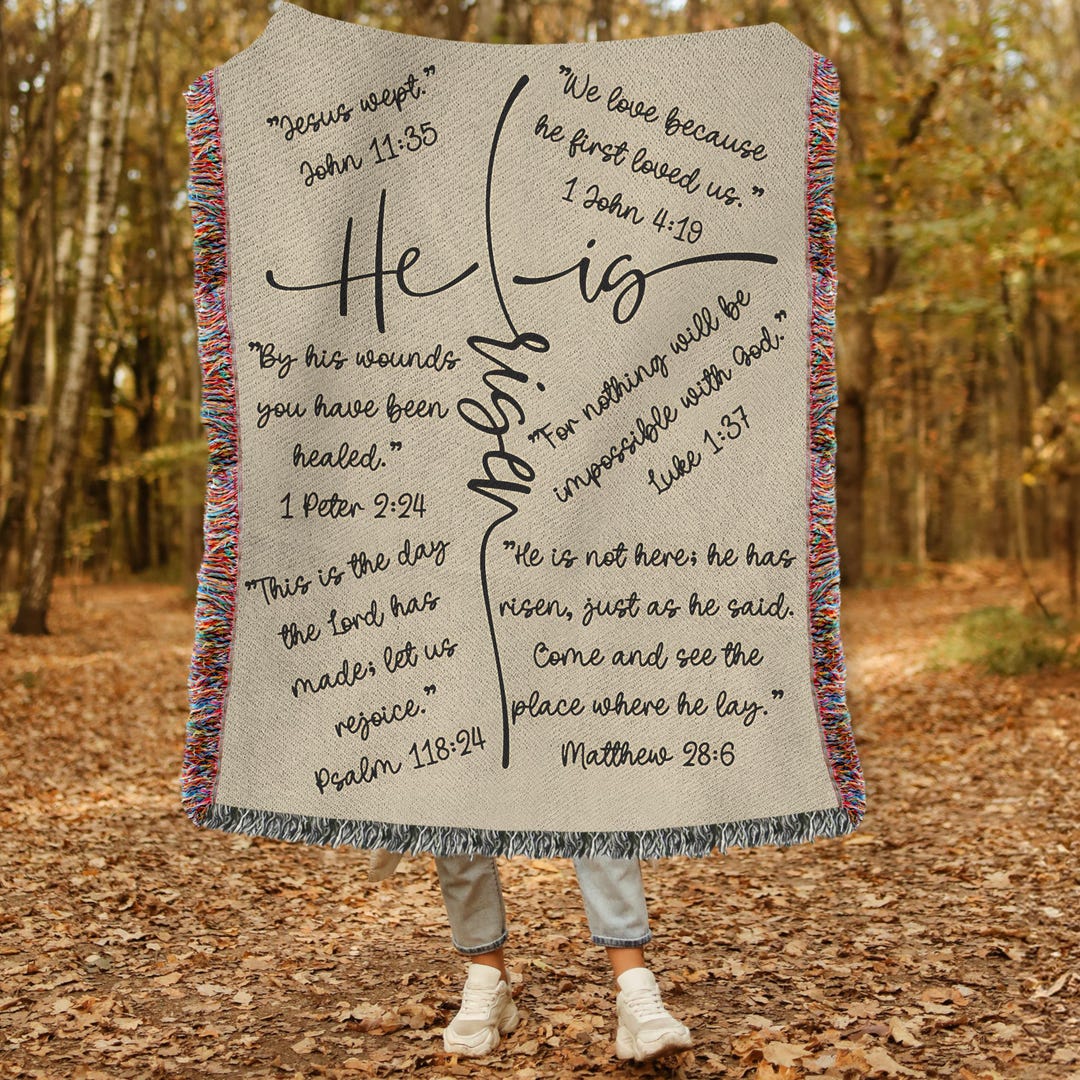 "Jesus wept."
John 11:35
"We love because
he first loved us."
1 John 4:19
He is
risen
"By his wounds
you have been
healed."
1 Peter 2:24
"For nothing will be
impossible with God."
Luke 1:37
"This is the day
the Lord has
made; let us
rejoice."
Psalm 118:24
"He is not here; he has
risen, just as he said.
Come and see the
place where he lay."
Matthew 28:6